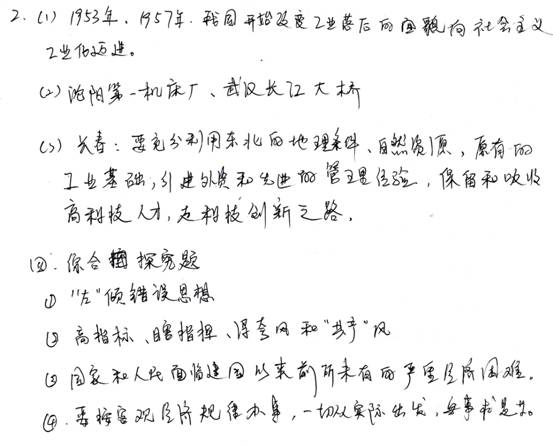 2. (1) 1953年、1957年. 我国开始改变工业落后的面貌向社会主义
工业化迈进。
(2) 沈阳第一机床厂、武汉长江大桥
(3) 长春: 要充分利用东北的地理条件、自然资源, 原有的
工业基础, 引进外资和先进的管理经验, 保留和吸收
高科技人才, 走科技创新之路.
四. 综合探究题
① "左"倾错误思想
② 高指标、瞎指挥、浮夸风和"共产"风
③ 国家和人民面临建国以来前所未有的严重经济困难.
④. 要按客观经济规律办事, 一切从实际出发, 实事求是等。